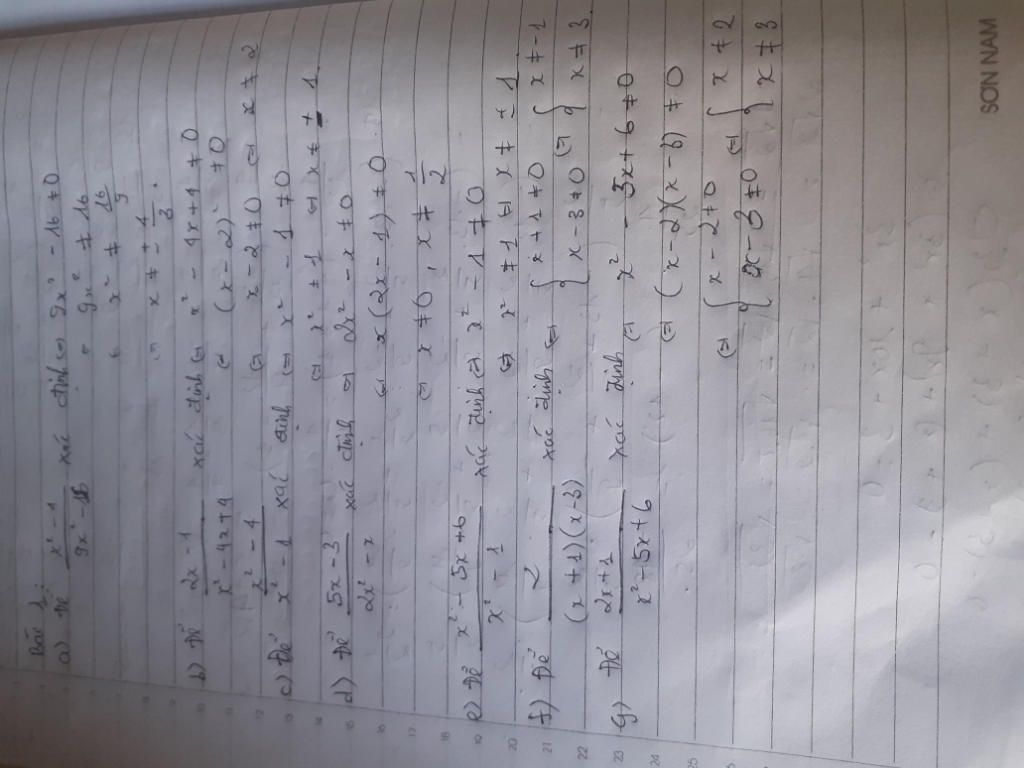 Bài 1:
a) Để x² - 1 / 9x² - 16 xác định ⇔ 9x² - 16 ≠ 0
⇔ 9x² ≠ 16
⇔ x² ≠ 16/9
⇔ x ≠ ± 4/3.
b) Để 2x - 1 / x² - 4x + 4 xác định ⇔ x² - 4x + 4 ≠ 0
⇔ (x - 2)² ≠ 0
⇔ x - 2 ≠ 0 ⇔ x ≠ 2
c) Để x² - 4 / x² - 1 xác định ⇔ x² - 1 ≠ 0
⇔ x² ≠ 1 ⇔ x ≠ ± 1.
d) Để 5x - 3 / 2x² - x xác định ⇔ 2x² - x ≠ 0
⇔ x(2x - 1) ≠ 0
⇔ x ≠ 0, x ≠ 1/2
e) Để x² - 5x + 6 / x² - 1 xác định ⇔ x² - 1 ≠ 0
⇔ x² ≠ 1 ⇔ x ≠ ± 1
f) Để 2 / (x + 1)(x - 3) xác định ⇔ { x + 1 ≠ 0 { x ≠ -1
{ x - 3 ≠ 0 ⇔ { x ≠ 3.
g) Để 2x + 1 / x² - 5x + 6 xác định ⇔ x² - 5x + 6 ≠ 0
⇔ (x - 2)(x - 6) ≠ 0
⇔ { x - 2 ≠ 0 ⇔ { x ≠ 2
{ x - 3 ≠ 0 { x ≠ 3
SON NAM